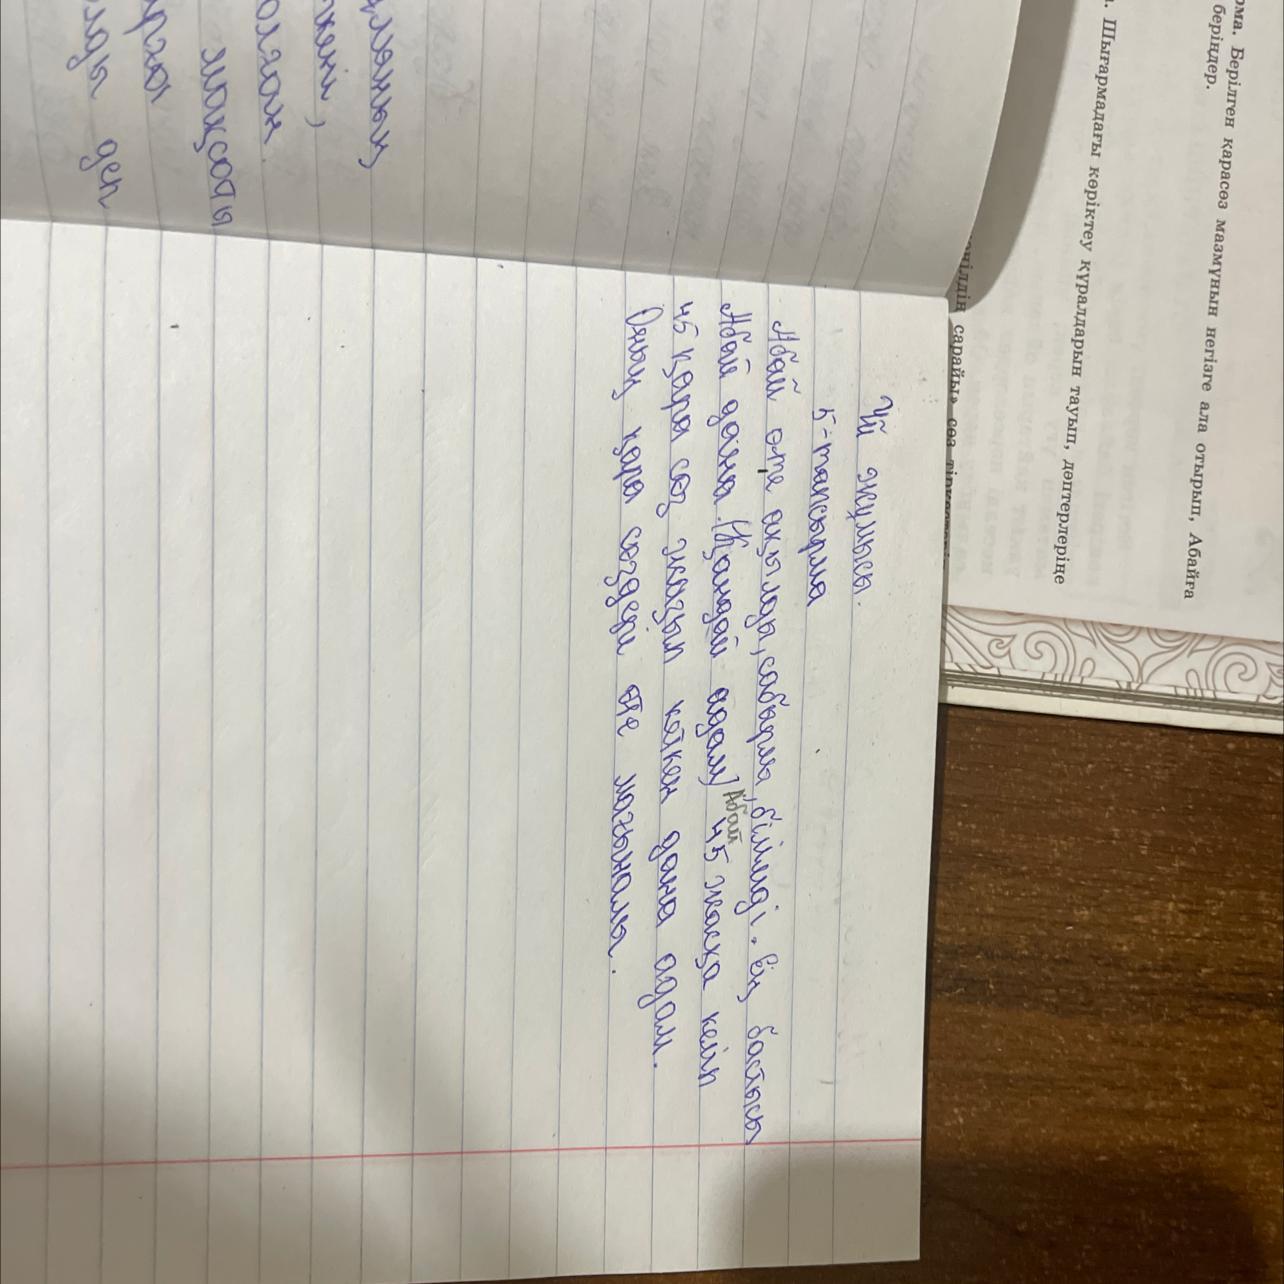 рма. Берілген қарасөз мазмұнын негізге ала отырып, Абайға
беріңдер.
. Шығармадағы көріктеу құралдарын тауып, дәптерлеріңе
сарайы» сөз
Үй жұмысы.
5-тапсырма
Абай өте ақылды, сабырлы, білімді. Ең бастысы
Абай дана. (Қандай адам) Абай 45 жасқа келіп
45 қара сөз жазып кеткен дана адам.
Оның қара сөздері өте мағыналы.
мақсаты
деп